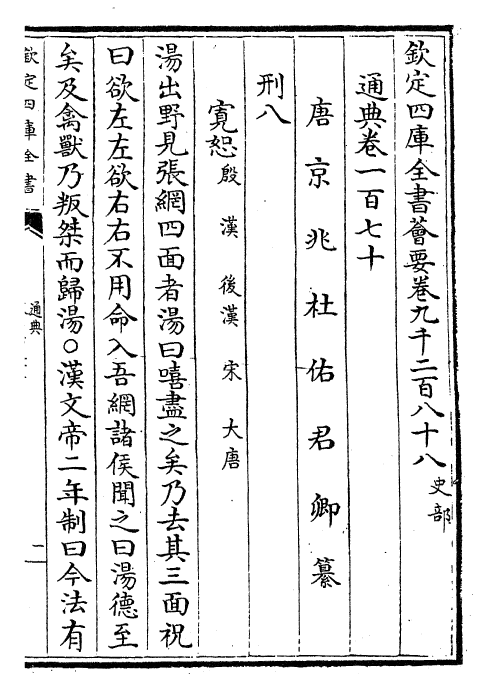 欽定四庫全書薈要卷九千二百八十八史部
通典卷一百七十
唐京兆杜佑君卿纂
刑八
寛恕殷漢後漢宋大唐
湯出野見張網四面者湯曰嘻盡之矣乃去其三面祝
曰欲左左欲右右不用命入吾網諸侯聞之曰湯德至
矣及禽獸乃叛桀而歸湯○漢文帝二年制曰今法有
欽定四庫全書
通典